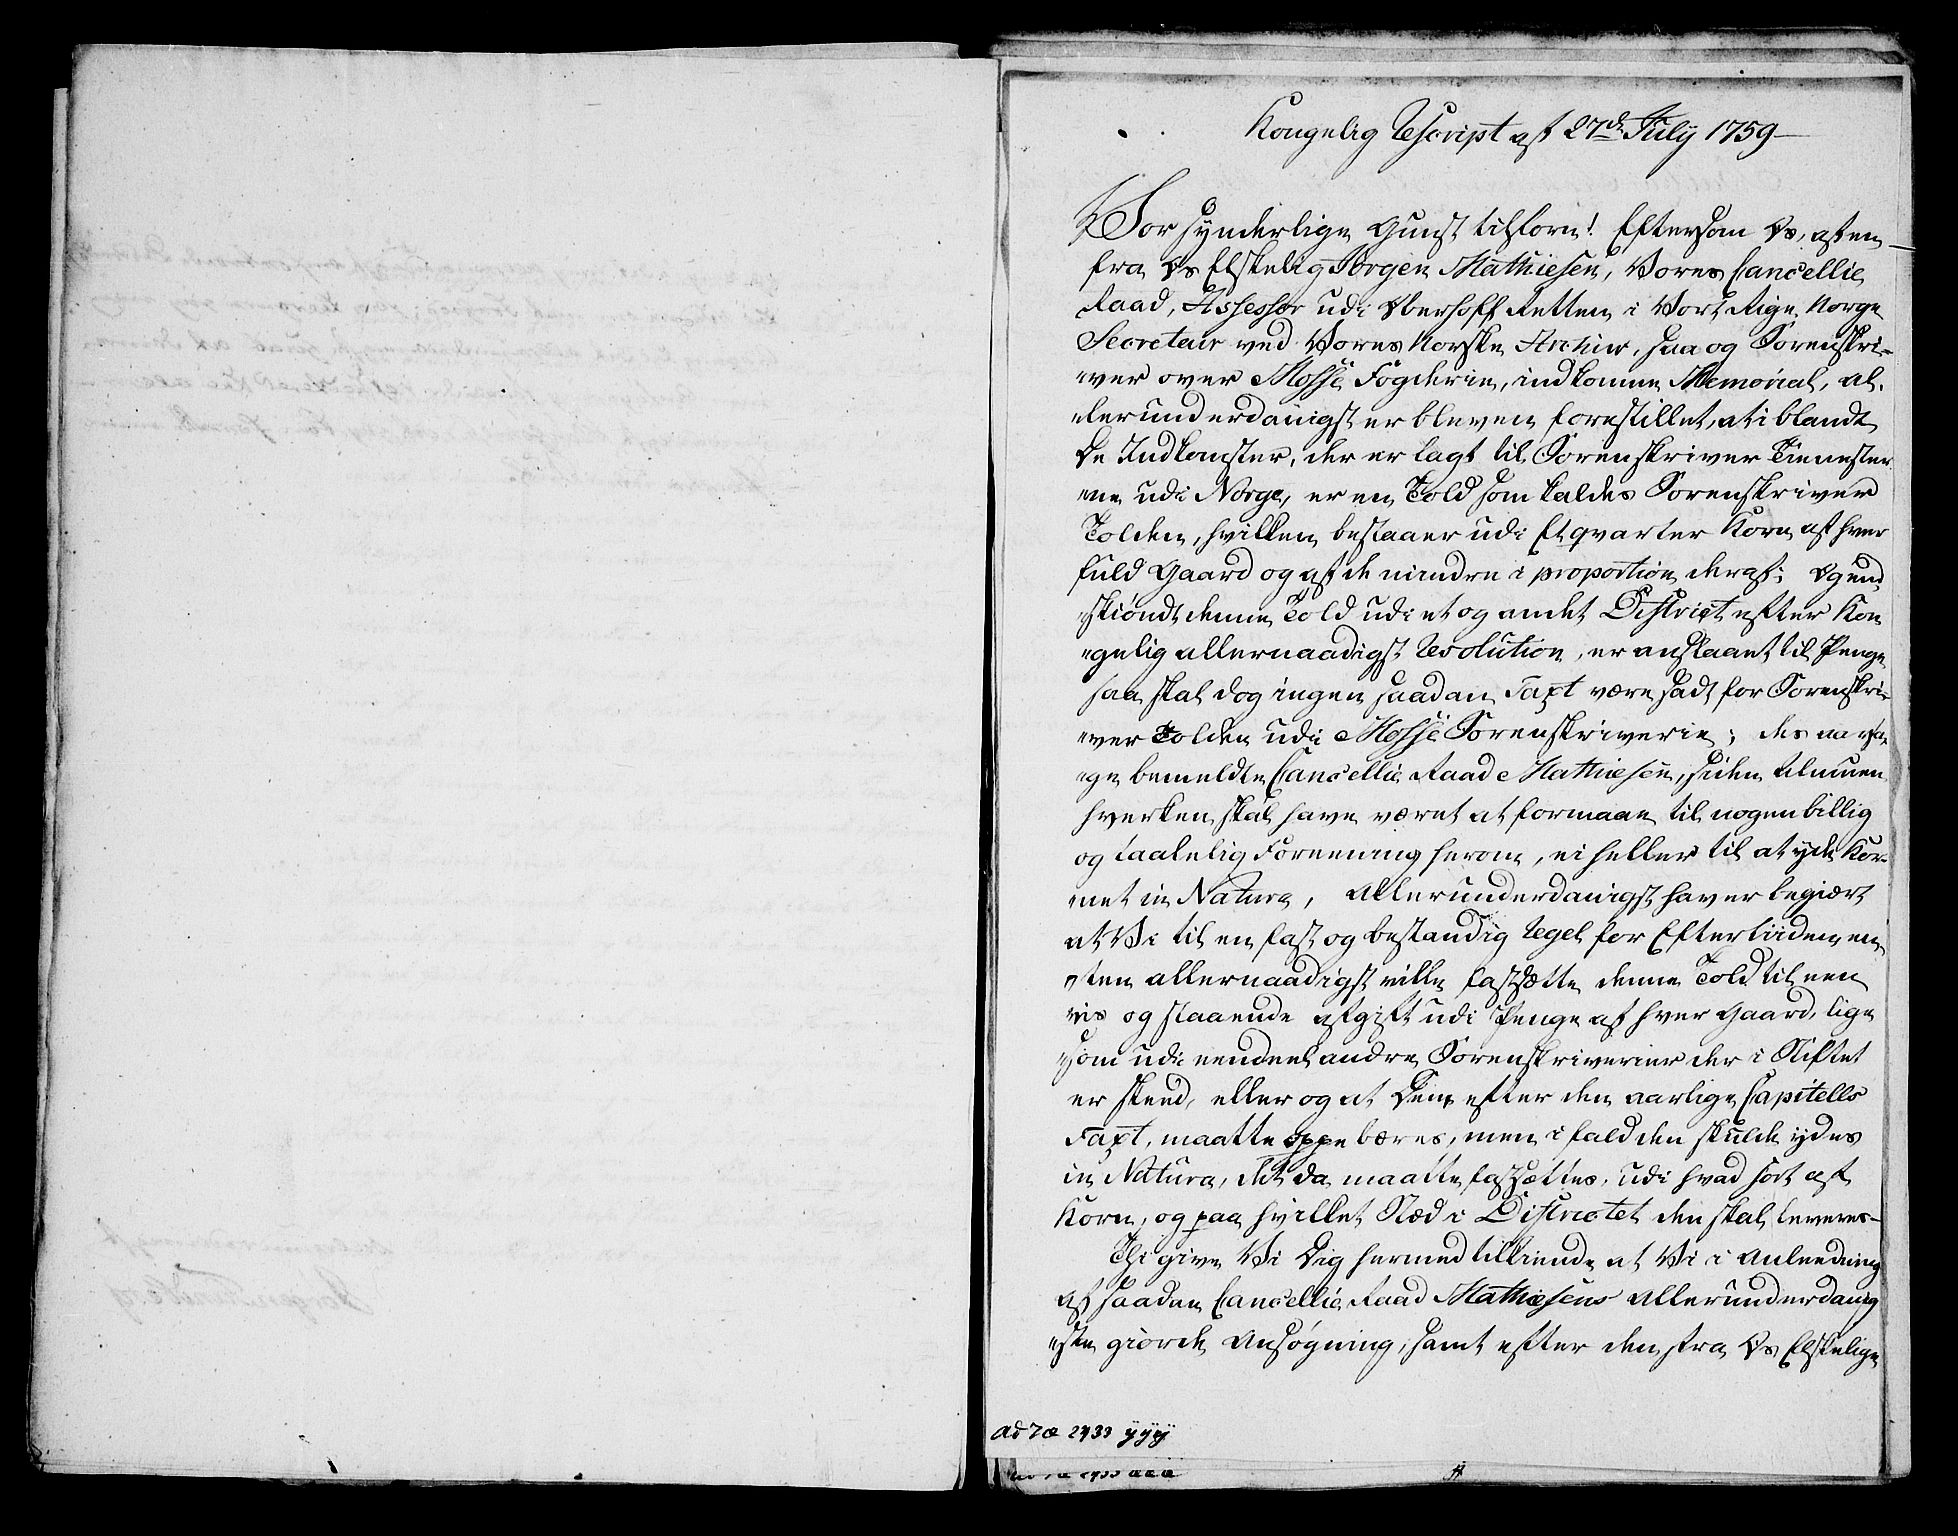 Kongelig Rescript af 27de July 1759
Vor synderlige Gunst tilforn! Eftersom Os, af en
fra Os Elskelig Jørgen Mathiesen, Vores Cancellie
Raad, Assessor udi Oberhoff Retten i Vort Rige Norge
Secretair ved Vores Norske Archiv, saa og Sorenskri-
wer over Mosse Fogderie, indkomne Memorial, al-
lerunderdanigst er bleven forestillet, at i blandt
De Indkomster, der er lagt til Sorenskriver Tienester
ne udi Norge, er en Told som kaldes Sorenskriver
Tolden, hvilken bestaaer udi Et qvarter Korn af hver
fuld Gaard og af de mindre i proportion deraf; Og end
skiøndt denne Told udi et og andet District efter Kon
gelig allernaadigst Resolution, er anslaaet til Penge
saa skal dog ingen saadan Taxt være sadt for Sorenskri-
wer Tolden udi Mosse Sorenskriverie; des aarsa
ge bemeldte Cancellie Raad Mathiesen, siden Almuen
hverken skal have været at formaae til nogen billig
og taalelig Foreening herom, ei heller til at yde Kor-
net in Natura, allerunderdanigst haver begiært
at Vi til en fast og bestandig Regel for Eftertiiden, en
ten allernaadigst ville fastsætte denne Told til een
vis og staaende afgift udi Penge af hver Gaard, lige
som udi eendeel andre Sorenskriverier der i Stiftet
er skeed, eller og at Den efter den aarlige Capitells
Taxt, maatte oppebæres, men i fald den skulde ydes
in Natura, det da maatte fastsættes, udi hvad sort af
Korn, og paa hvilket Stæd i Districtet den skal leveres-
Thi give Vi Dig hermed tilkiende at Vi i Anleedning
af saadan Cancellie Raad Mathiesens allerunderdanig
ste giorde Ansøgning, samt efter den fra Os Elskelige
ad 7 æ 2433 yyy